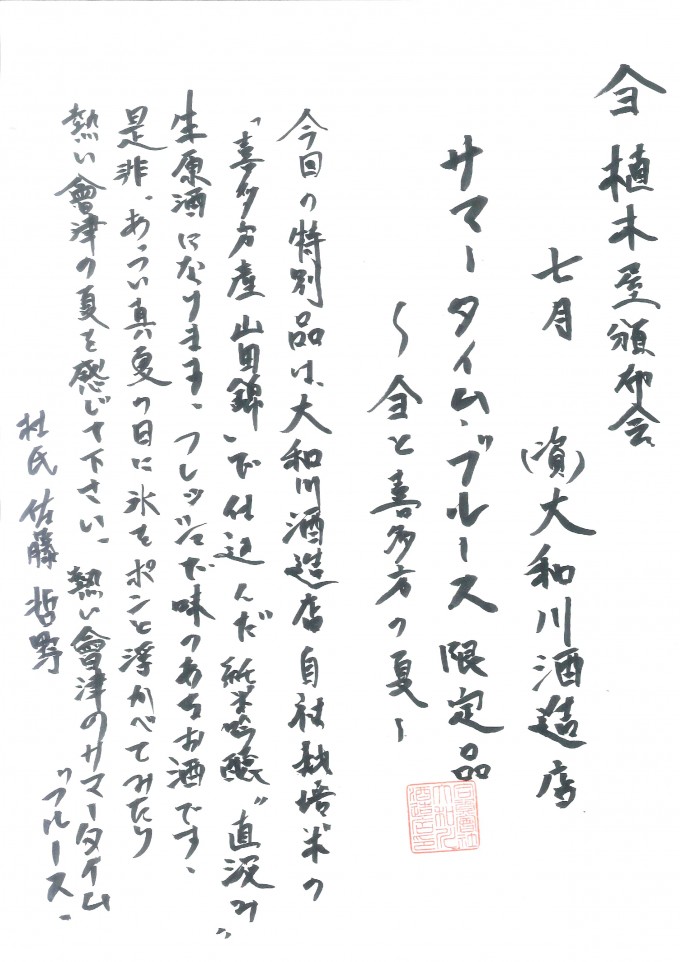 植木屋頒布会
七月 (資)大和川酒造店
サマータイム"ブルース 限定品
〜 と喜多方の夏〜
今回の特別品は、大和川酒造店自社栽培米の
「喜多方産山田錦」で仕込んだ純米吟醸"直汲み"
生原酒になります。フレッシュな味のあるお酒です。
是非、あつい真夏の日に氷をポンと浮かべてみたり
熱い會津の夏を感じて下さい。熱い會津のサマータイム
"ブルース"
杜氏 佐藤哲野
合資会社大和川酒造店印